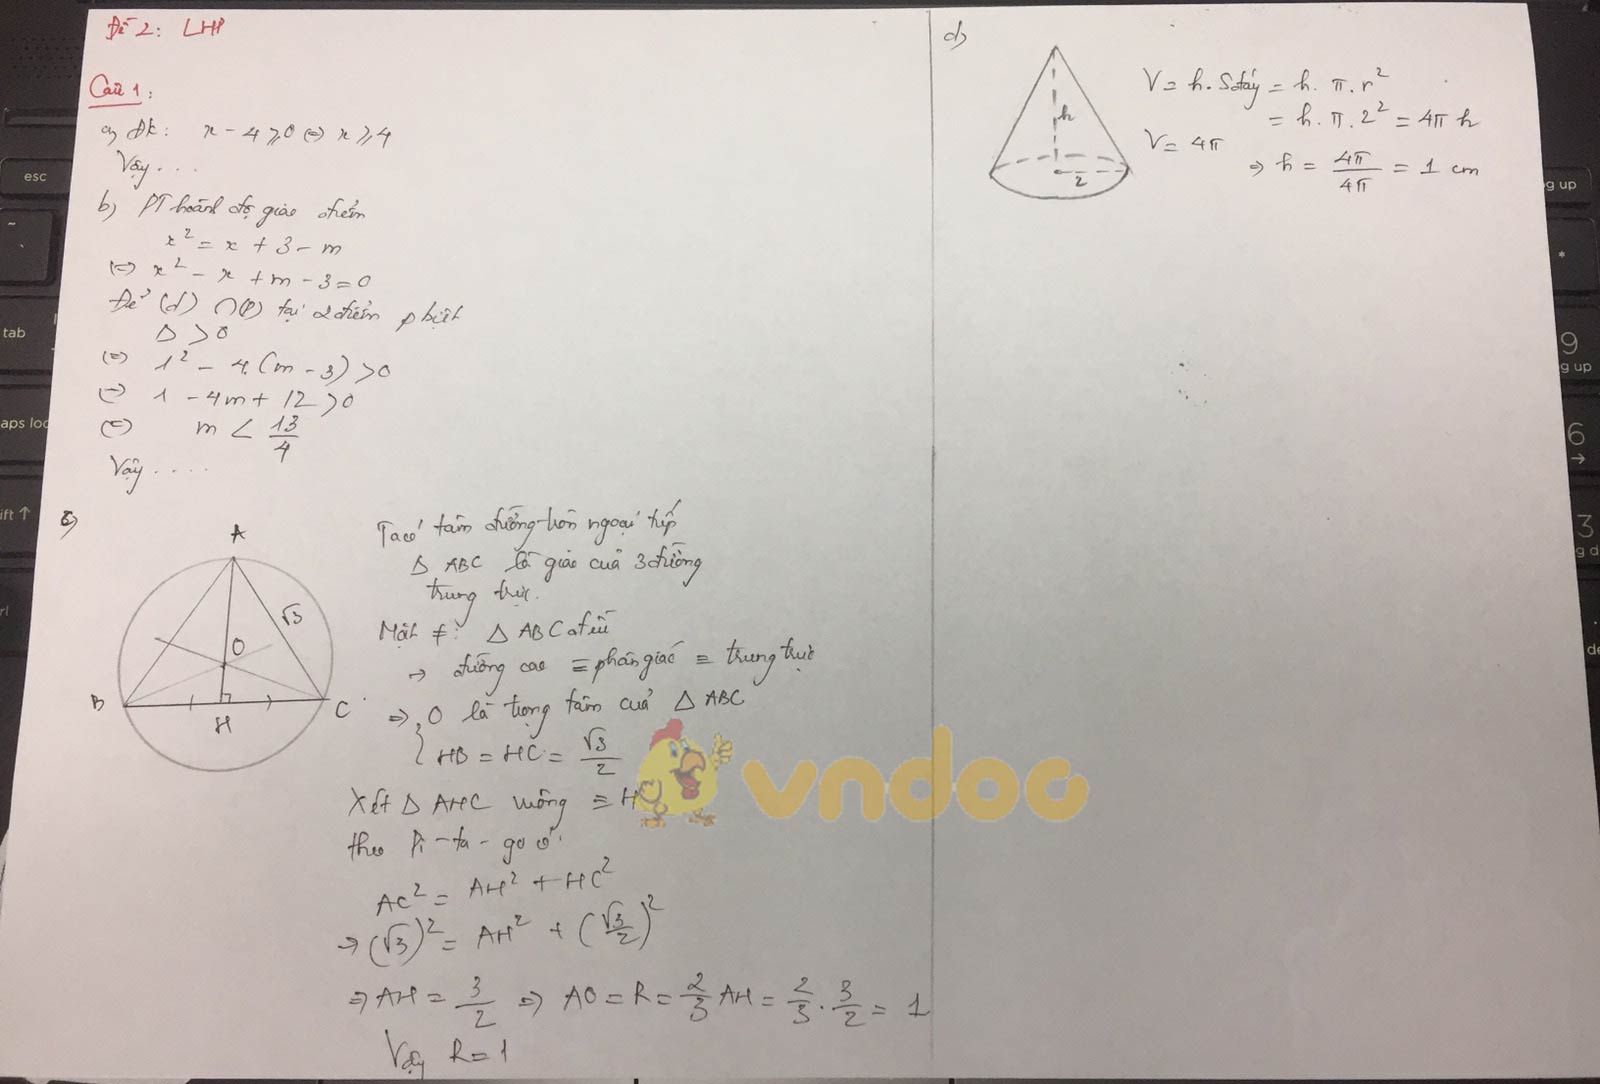 Đề 2: LHP
Câu 1:
a) Đk: x - 4 ⩾ 0 ⇔ x ⩾ 4
Vậy ...
b) PT hoành độ giao điểm
x² = x + 3 - m
⇔ x² - x + m - 3 = 0
Để (d) ∩ (P) tại 2 điểm p biệt
Δ > 0
⇔ 1² - 4.(m - 3) > 0
⇔ 1 - 4m + 12 > 0
⇔ m < 13/4
Vậy ....
c)
A
√3
O
B
H
C
Ta có tâm đường tròn ngoại tiếp
Δ ABC là giao của 3 đường
trung trực.
Mặt ≠: Δ ABC đều
→ đường cao ≡ phân giác ≡ trung trực
⇒ { O là trọng tâm của Δ ABC
HB = HC = √3/2
Xét Δ AHC vuông ≡ H
theo Pi-ta-go có:
AC² = AH² + HC²
⇒ (√3)² = AH² + (√3/2)²
⇒ AH = 3/2 ⇒ AO = R = 2/3 AH = 2/3 . 3/2 = 1
Vậy R = 1
d)
h
2
V = h. Sđáy = h. π. r²
= h. π. 2² = 4π h
V = 4π
⇒ h = 4π/4π = 1 cm
vndoc
esc
tab
aps loc
ift ↑
rl
g up
*
9
g up
6
→
3
g d
de